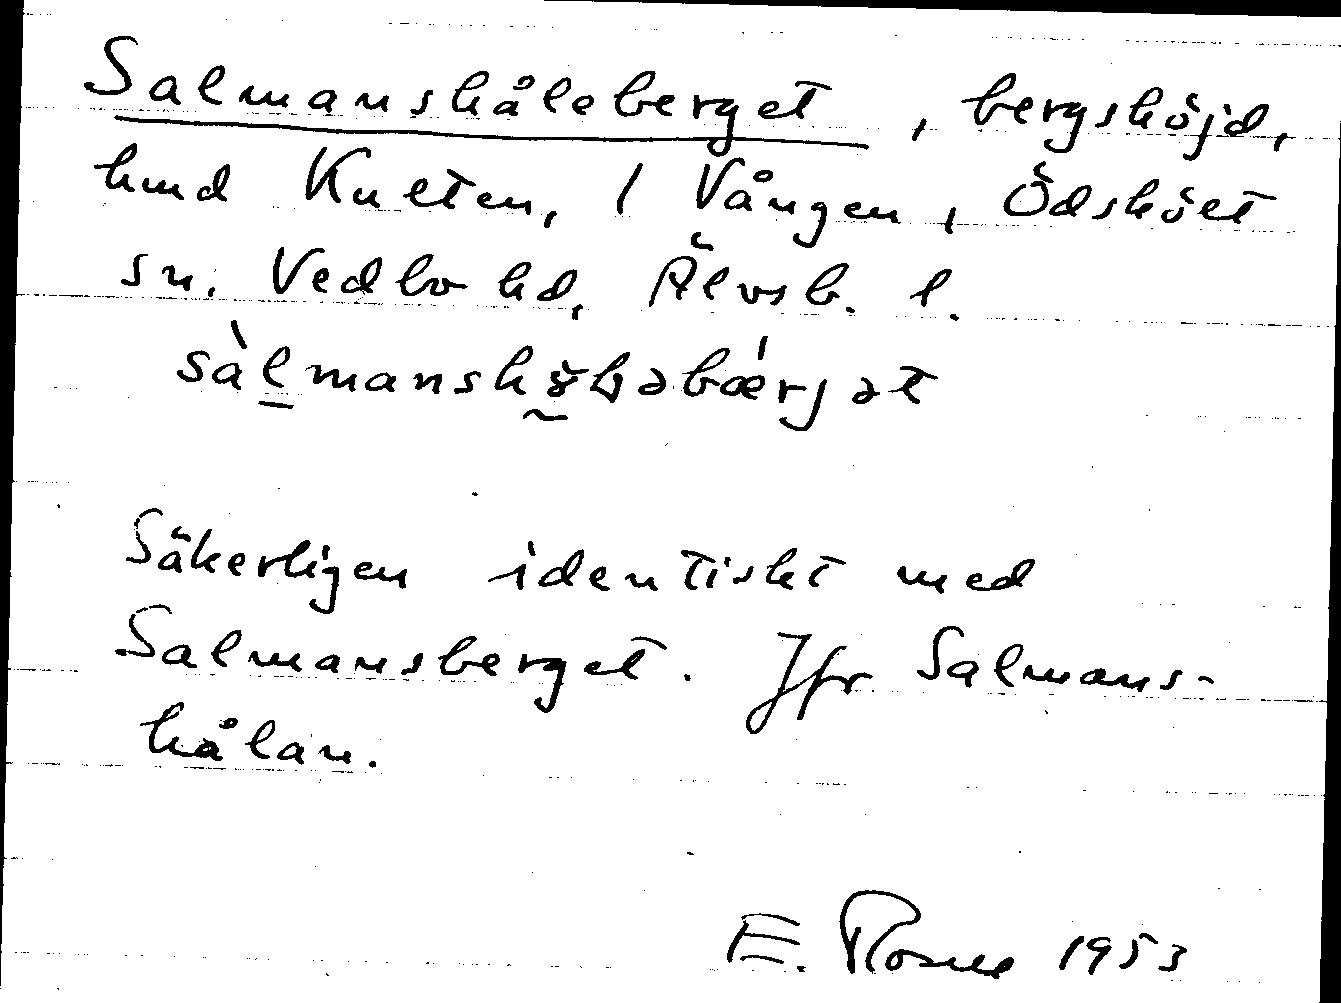 Salmanshåleberget, bergshöjd,
hmd Kulten, / Vången, Ödsköet
sn. Vedbo hd, Älvsb. l.
Säkerligen identiskt med
Salmansberget. Jfr Salmans-
hålan.
E. 1953